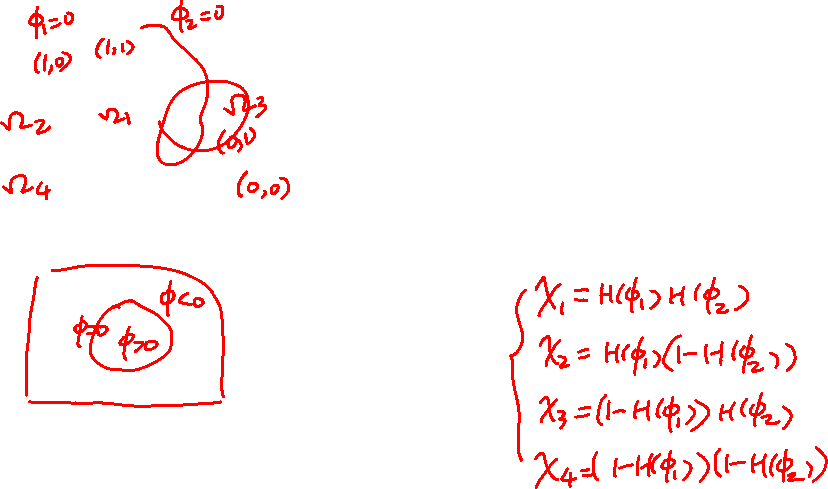 ϕ₁=0 ϕ₂=0
(1,0) (1,1)
Ω₂ Ω₁ Ω₃
(0,1)
Ω₄ (0,0)
ϕ<0
ϕ=0 ϕ>0
χ₁ = H(ϕ₁) H(ϕ₂)
χ₂ = H(ϕ₁)(1-H(ϕ₂))
χ₃ = (1-H(ϕ₁)) H(ϕ₂)
χ₄ = (1-H(ϕ₁))(1-H(ϕ₂))